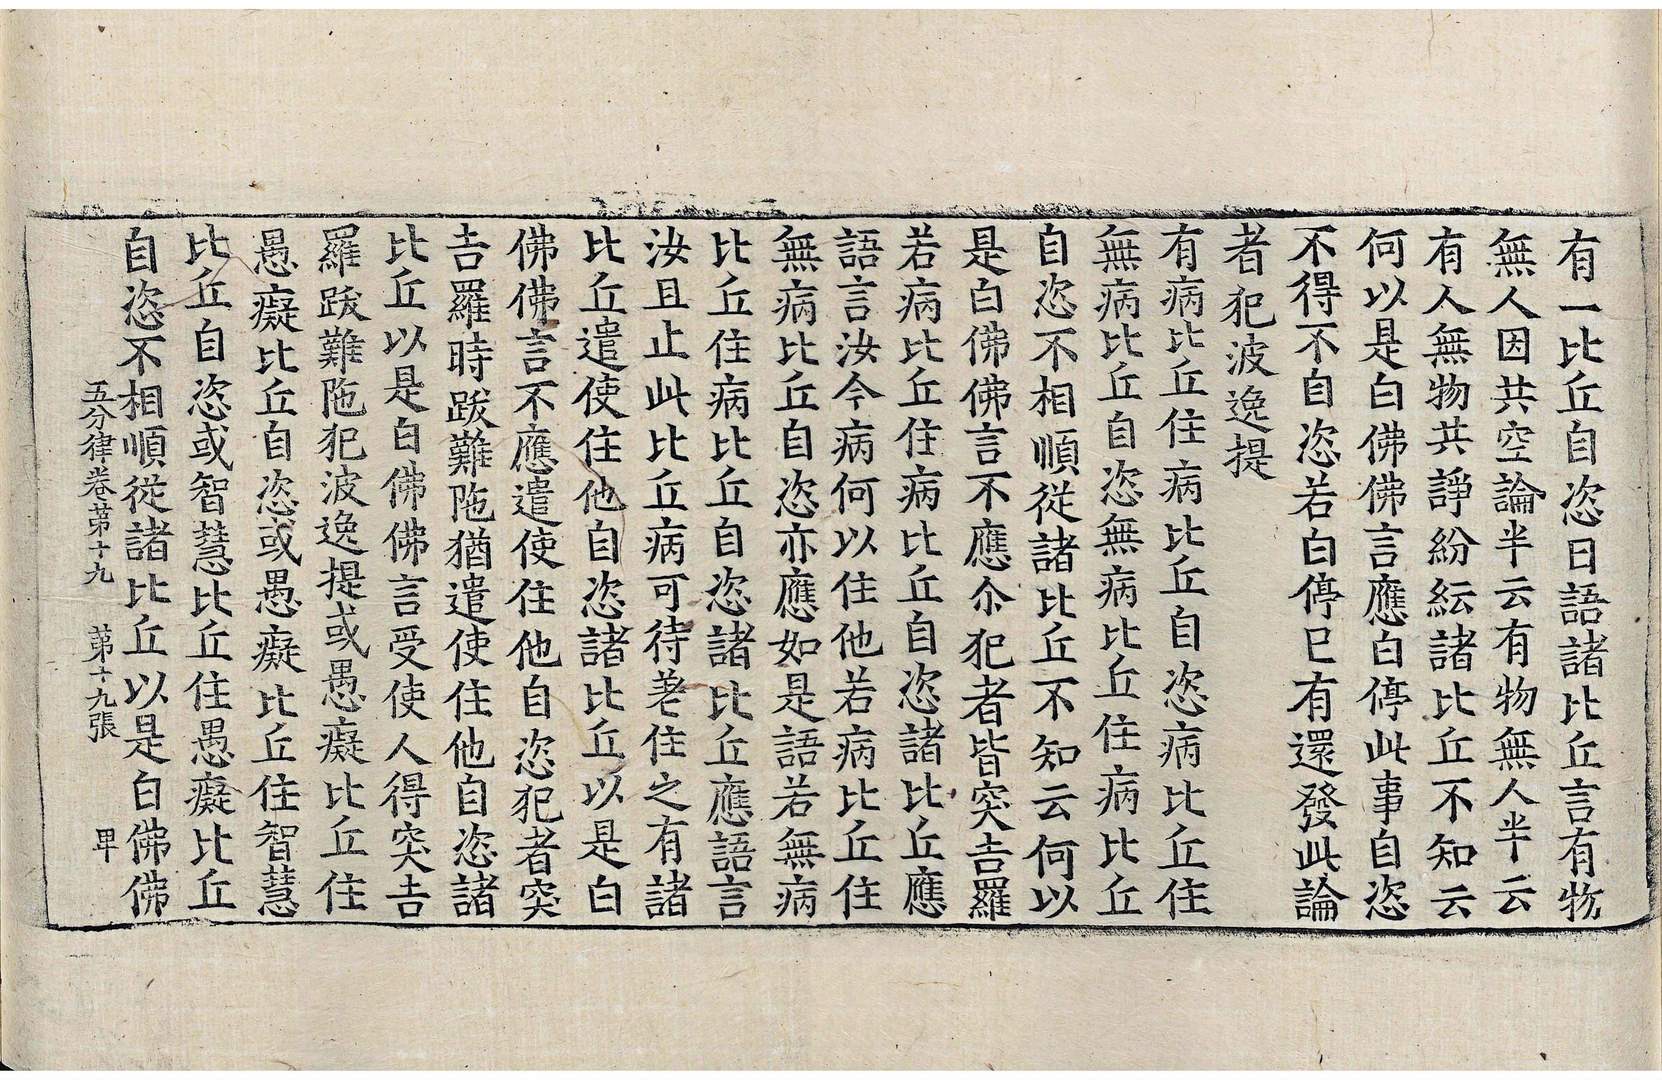 有一比丘自恣日語諸比丘言有物
無人因共空論半云有物無人半云
有人無物共諍紛紜諸比丘不知云
何以是白佛佛言應白停此事自恣
不得不自恣若白停已有還發此論
者犯波逸提
有病比丘住病比丘自恣病比丘住
無病比丘自恣無病比丘住病比丘
自恣不相順從諸比丘不知云何以
是白佛佛言不應尒犯者皆突吉羅
若病比丘住病比丘自恣諸比丘應
語言汝今病何以住他若病比丘住
無病比丘自恣亦應如是語若無病
比丘住病比丘自恣諸比丘應語言
汝且止此比丘病可待差住之有諸
比丘遣使住他自恣諸比丘以是白
佛佛言不應遣使住他自恣犯者突
吉羅時跋難陁猶遣使住他自恣諸
比丘以是白佛佛言受使人得突吉
羅跋難陁犯波逸提或愚癡比丘住
愚癡比丘自恣或愚癡比丘住智慧
比丘自恣或智慧比丘住愚癡比丘
自恣不相順從諸比丘以是白佛佛
五分律卷第十九 第十九張